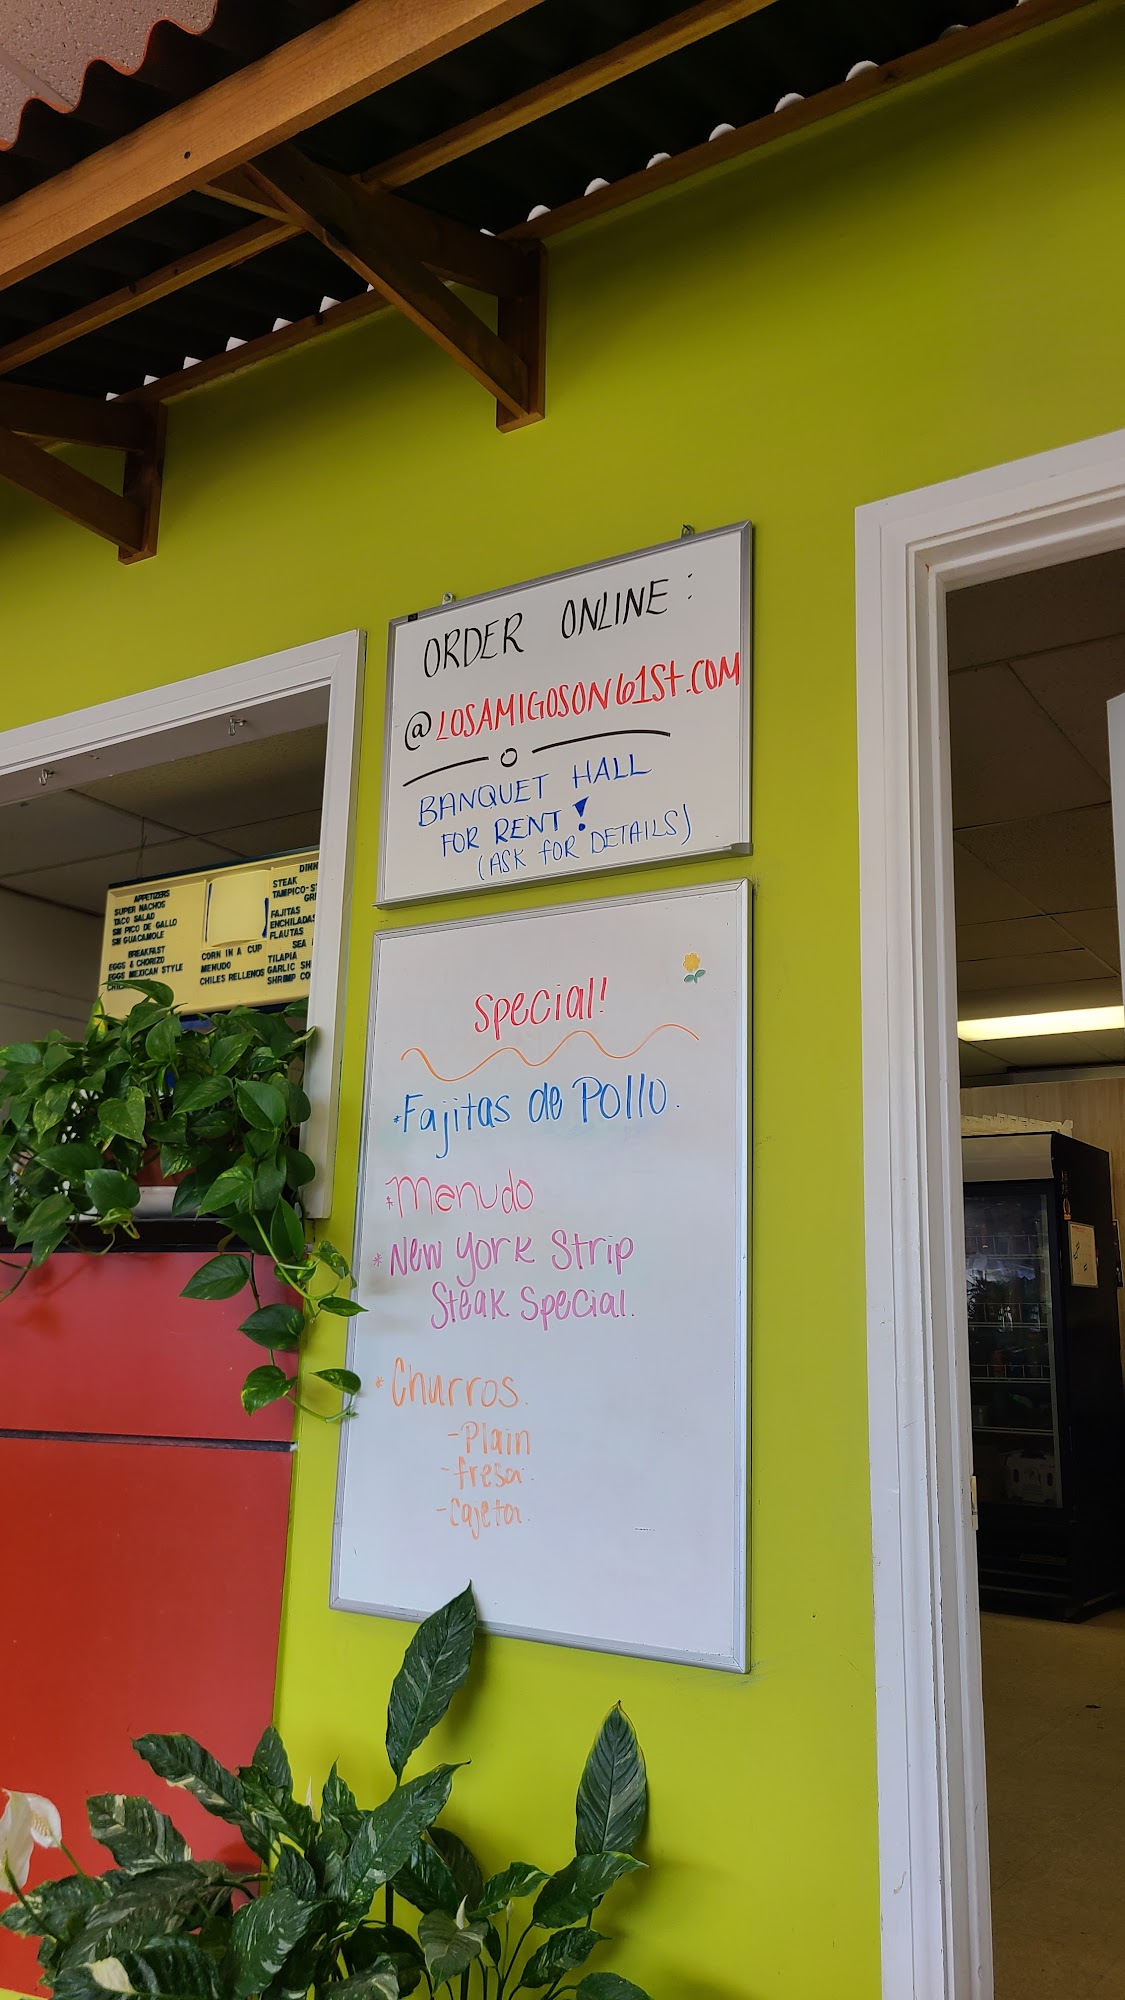 ORDER ONLINE:
@LOSAMIGOSON61St.COM
BANQUET HALL
FOR RENT!
(ASK FOR DETAILS)
Special!
*Fajitas de Pollo.
*Menudo
*New York Strip
Steak Special.
*Churros.
-Plain
-fresa.
-Cajeta.
APPETIZERS
SUPER NACHOS
TACO SALAD
SM PICO DE GALLO
SM GUACAMOLE
BREAKFAST
EGGS & CHORIZO
EGGS MEXICAN STYLE
CORN IN A CUP
MENUDO
CHILES RELLENOS
STEAK
FAJITAS
ENCHILADAS
FLAUTAS
SEA
TILAPIA
GARLIC SH
SHRIMP CO